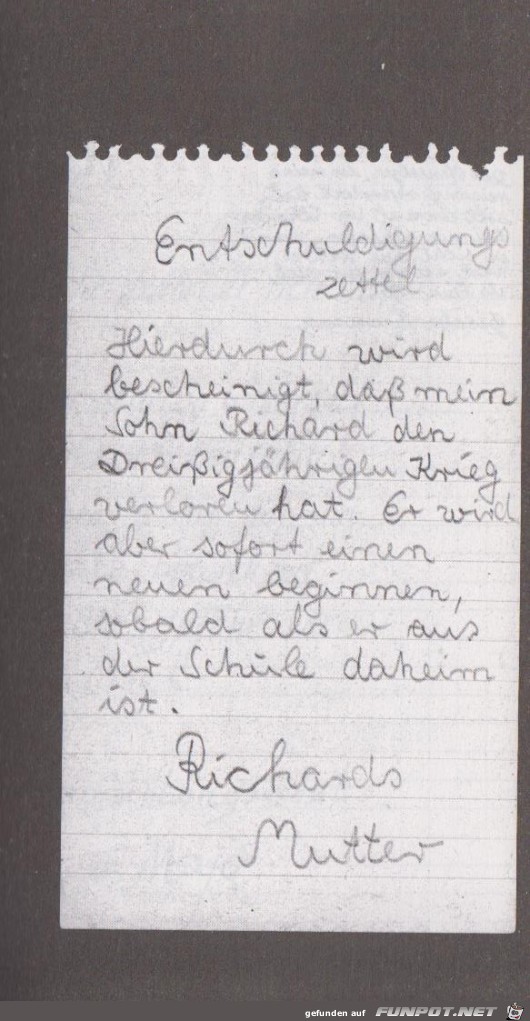 Entschuldigungs
zettel
Hierdurch wird
bescheinigt, daß mein
Sohn Richard den
Dreißigjährigen Krieg
verloren hat. Er wird
aber sofort einen
neuen beginnen,
sobald als er aus
der Schule daheim
ist.
Richards
Mutter
gefunden auf FUNPOT.NET